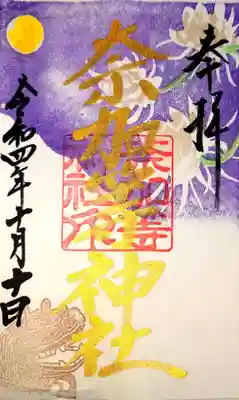 奉拝
奈加美神社
令和四年十月十日